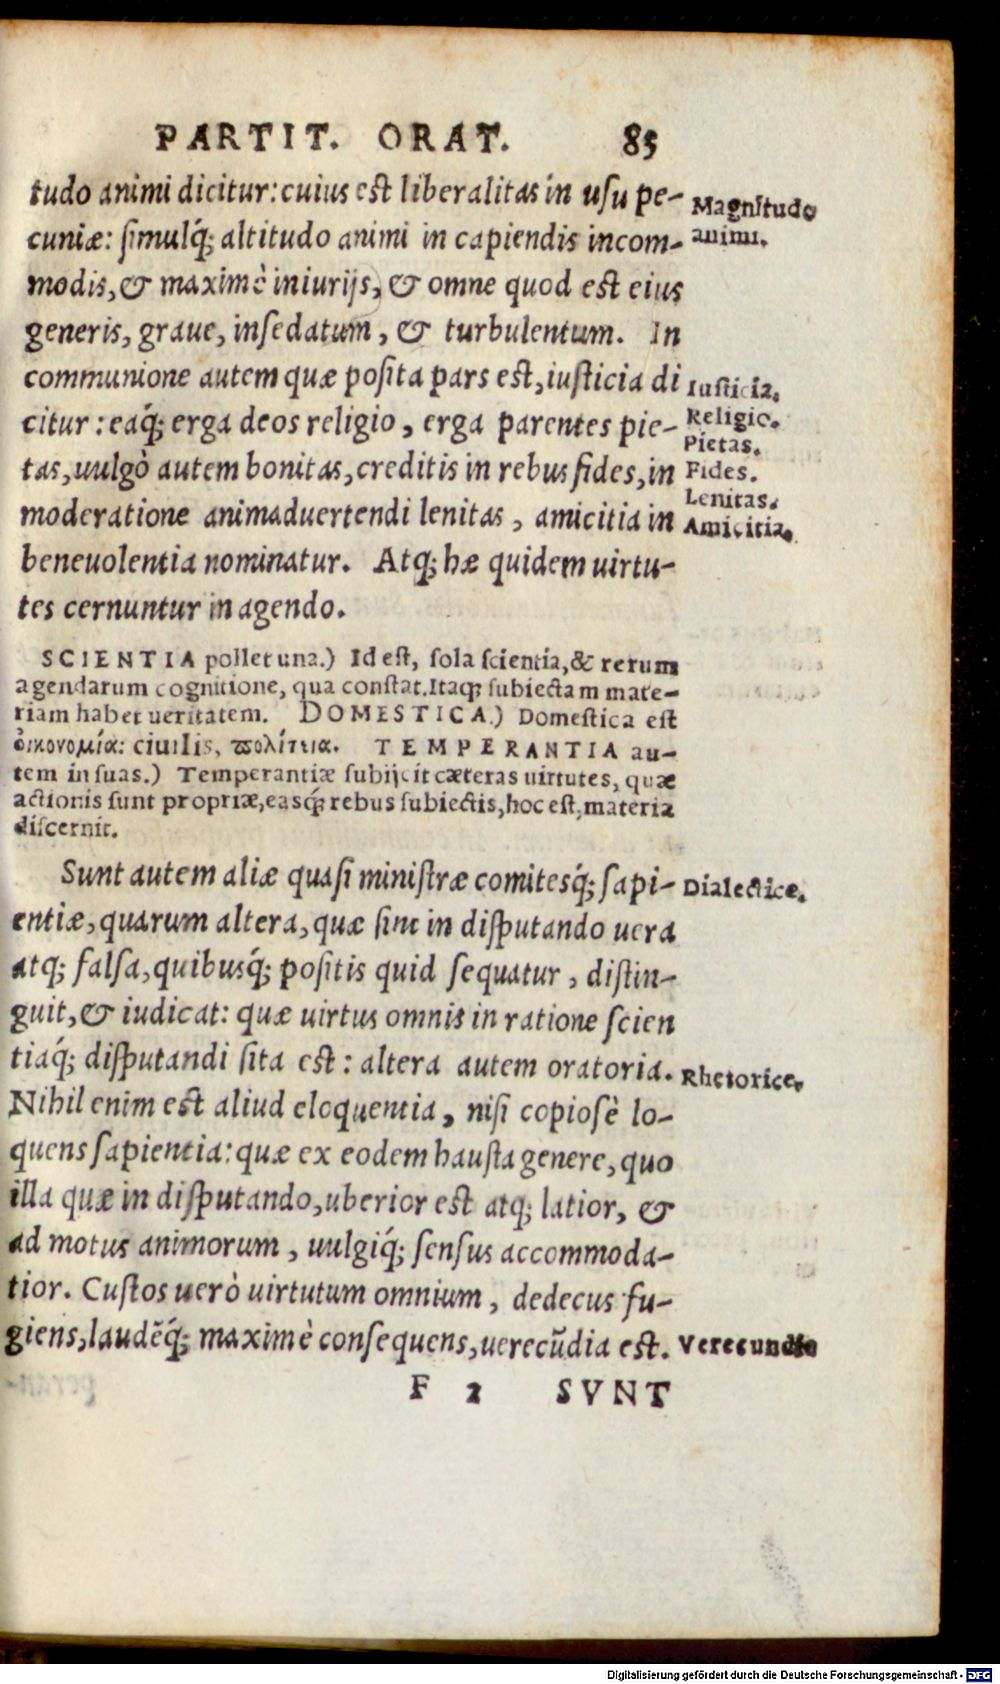 PARTIT. ORAT. 85
tudo animi dicitur: cuius est liberalitas in usu pe-
cuniæ: simulq́; altitudo animi in capiendis incom-
modis, & maximè iniurijs, & omne quod est eius
generis, graue, insedatum, & turbulentum. In
communione autem quæ posita pars est, iusticia di
citur: eaq́; erga deos religio, erga parentes pie-
tas, uulgò autem bonitas, creditis in rebus fides, in
moderatione animaduertendi lenitas, amicitia in
beneuolentia nominatur. Atq; hæ quidem uirtu-
tes cernuntur in agendo.
Magnitudo
animi.
Iusticia.
Religio.
Pietas.
Fides.
Lenitas.
Amicitia.
SCIENTIA pollet una.) Id est, sola scientia, & rerum
agendarum cognitione, qua constat. Itaq; subiectam mate-
riam habet ueritatem. DOMESTICA.) Domestica est
οἰκονομία: ciuilis, πολίτεια. TEMPERANTIA au-
tem in suas.) Temperantiæ subijcit cæteras uirtutes, quæ
actionis sunt propriæ, easq́; rebus subiectis, hoc est, materia
discernit.
Sunt autem aliæ quasi ministræ comitesq́; sapi-
entiæ, quarum altera, quæ sint in disputando uera
atq; falsa, quibusq́; positis quid sequatur, distin-
guit, & iudicat: quæ uirtus omnis in ratione scien
tiaq́; disputandi sita est: altera autem oratoria.
Nihil enim est aliud eloquentia, nisi copiosè lo-
quens sapientia: quæ ex eodem hausta genere, quo
illa quæ in disputando, uberior est atq; latior, &
ad motus animorum, uulgiq́; sensus accommoda-
tior. Custos uerò uirtutum omnium, dedecus fu-
giens, laudẽq́; maximè consequens, uerecũdia est.
Dialectice.
Rhetorice.
Verecundia
F 2 SVNT
Digitalisierung gefördert durch die Deutsche Forschungsgemeinschaft - DFG